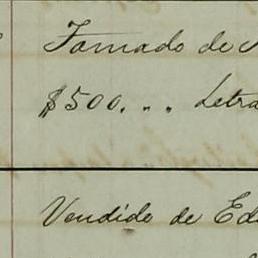 Tomado de
$500. " " Letra
Vendido de Ed